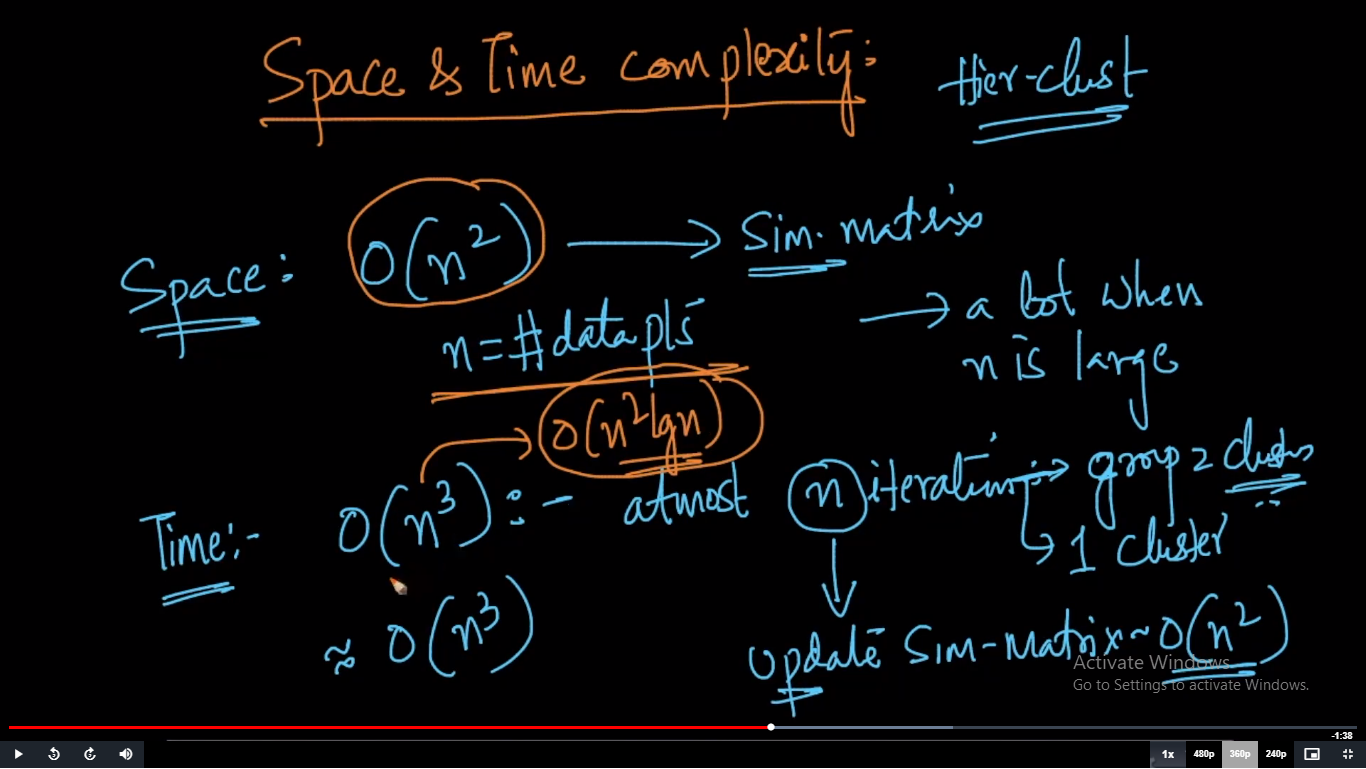 Space & Time complexity:
Hier-clust
Space: O(n²) → Sim. matrix
n = # data pts
→ a lot when
n is large
O(n² lg n)
Time:- O(n³) :- atmost n iterations → group 2 clusters
↳ 1 cluster
≈ O(n³)
update Sim-matrix ~ O(n²)
Activate Windows
Go to Settings to activate Windows.
-1:38
5 5 1x 480p 360p 240p